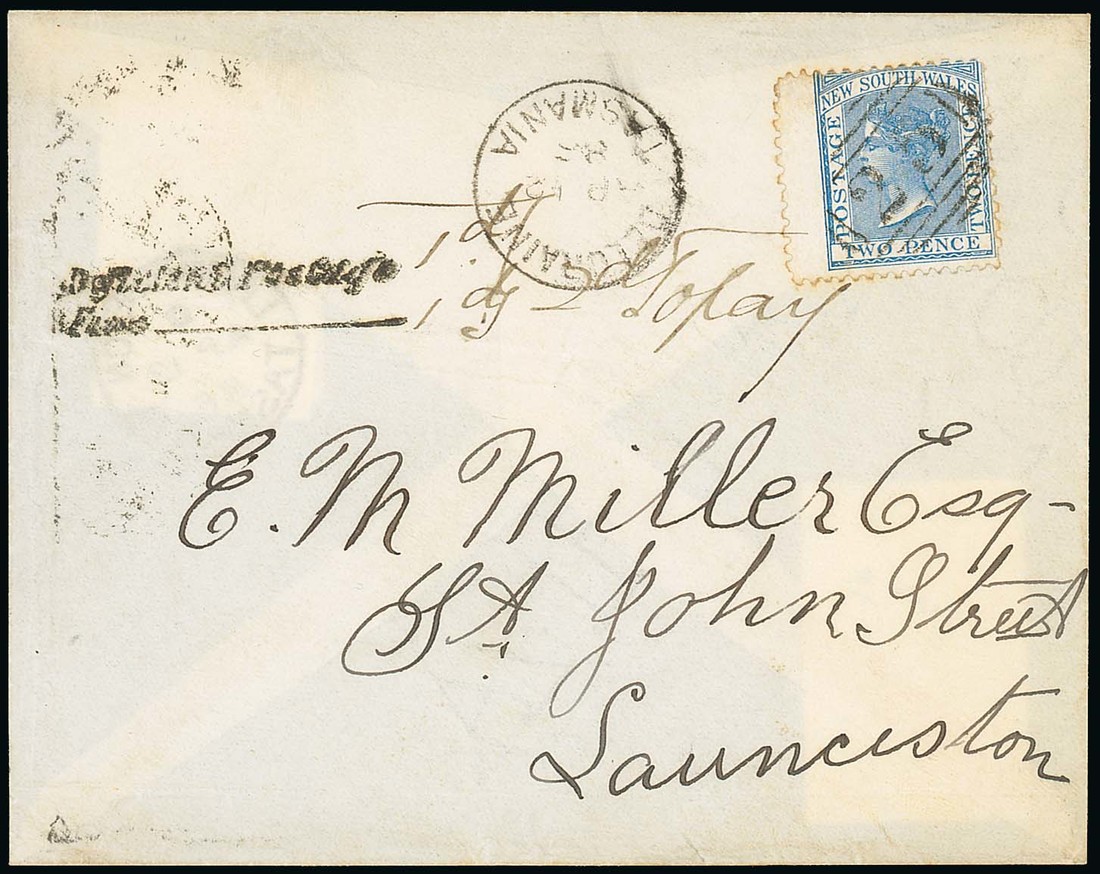 NEW SOUTH WALES
POSTAGE
TWO PENCE
TWO PENCE
TASMANIA
Deficient Postage
Fine
1d
1d
2d To pay
E. M Miller Esq-
St. John Street
Launceston